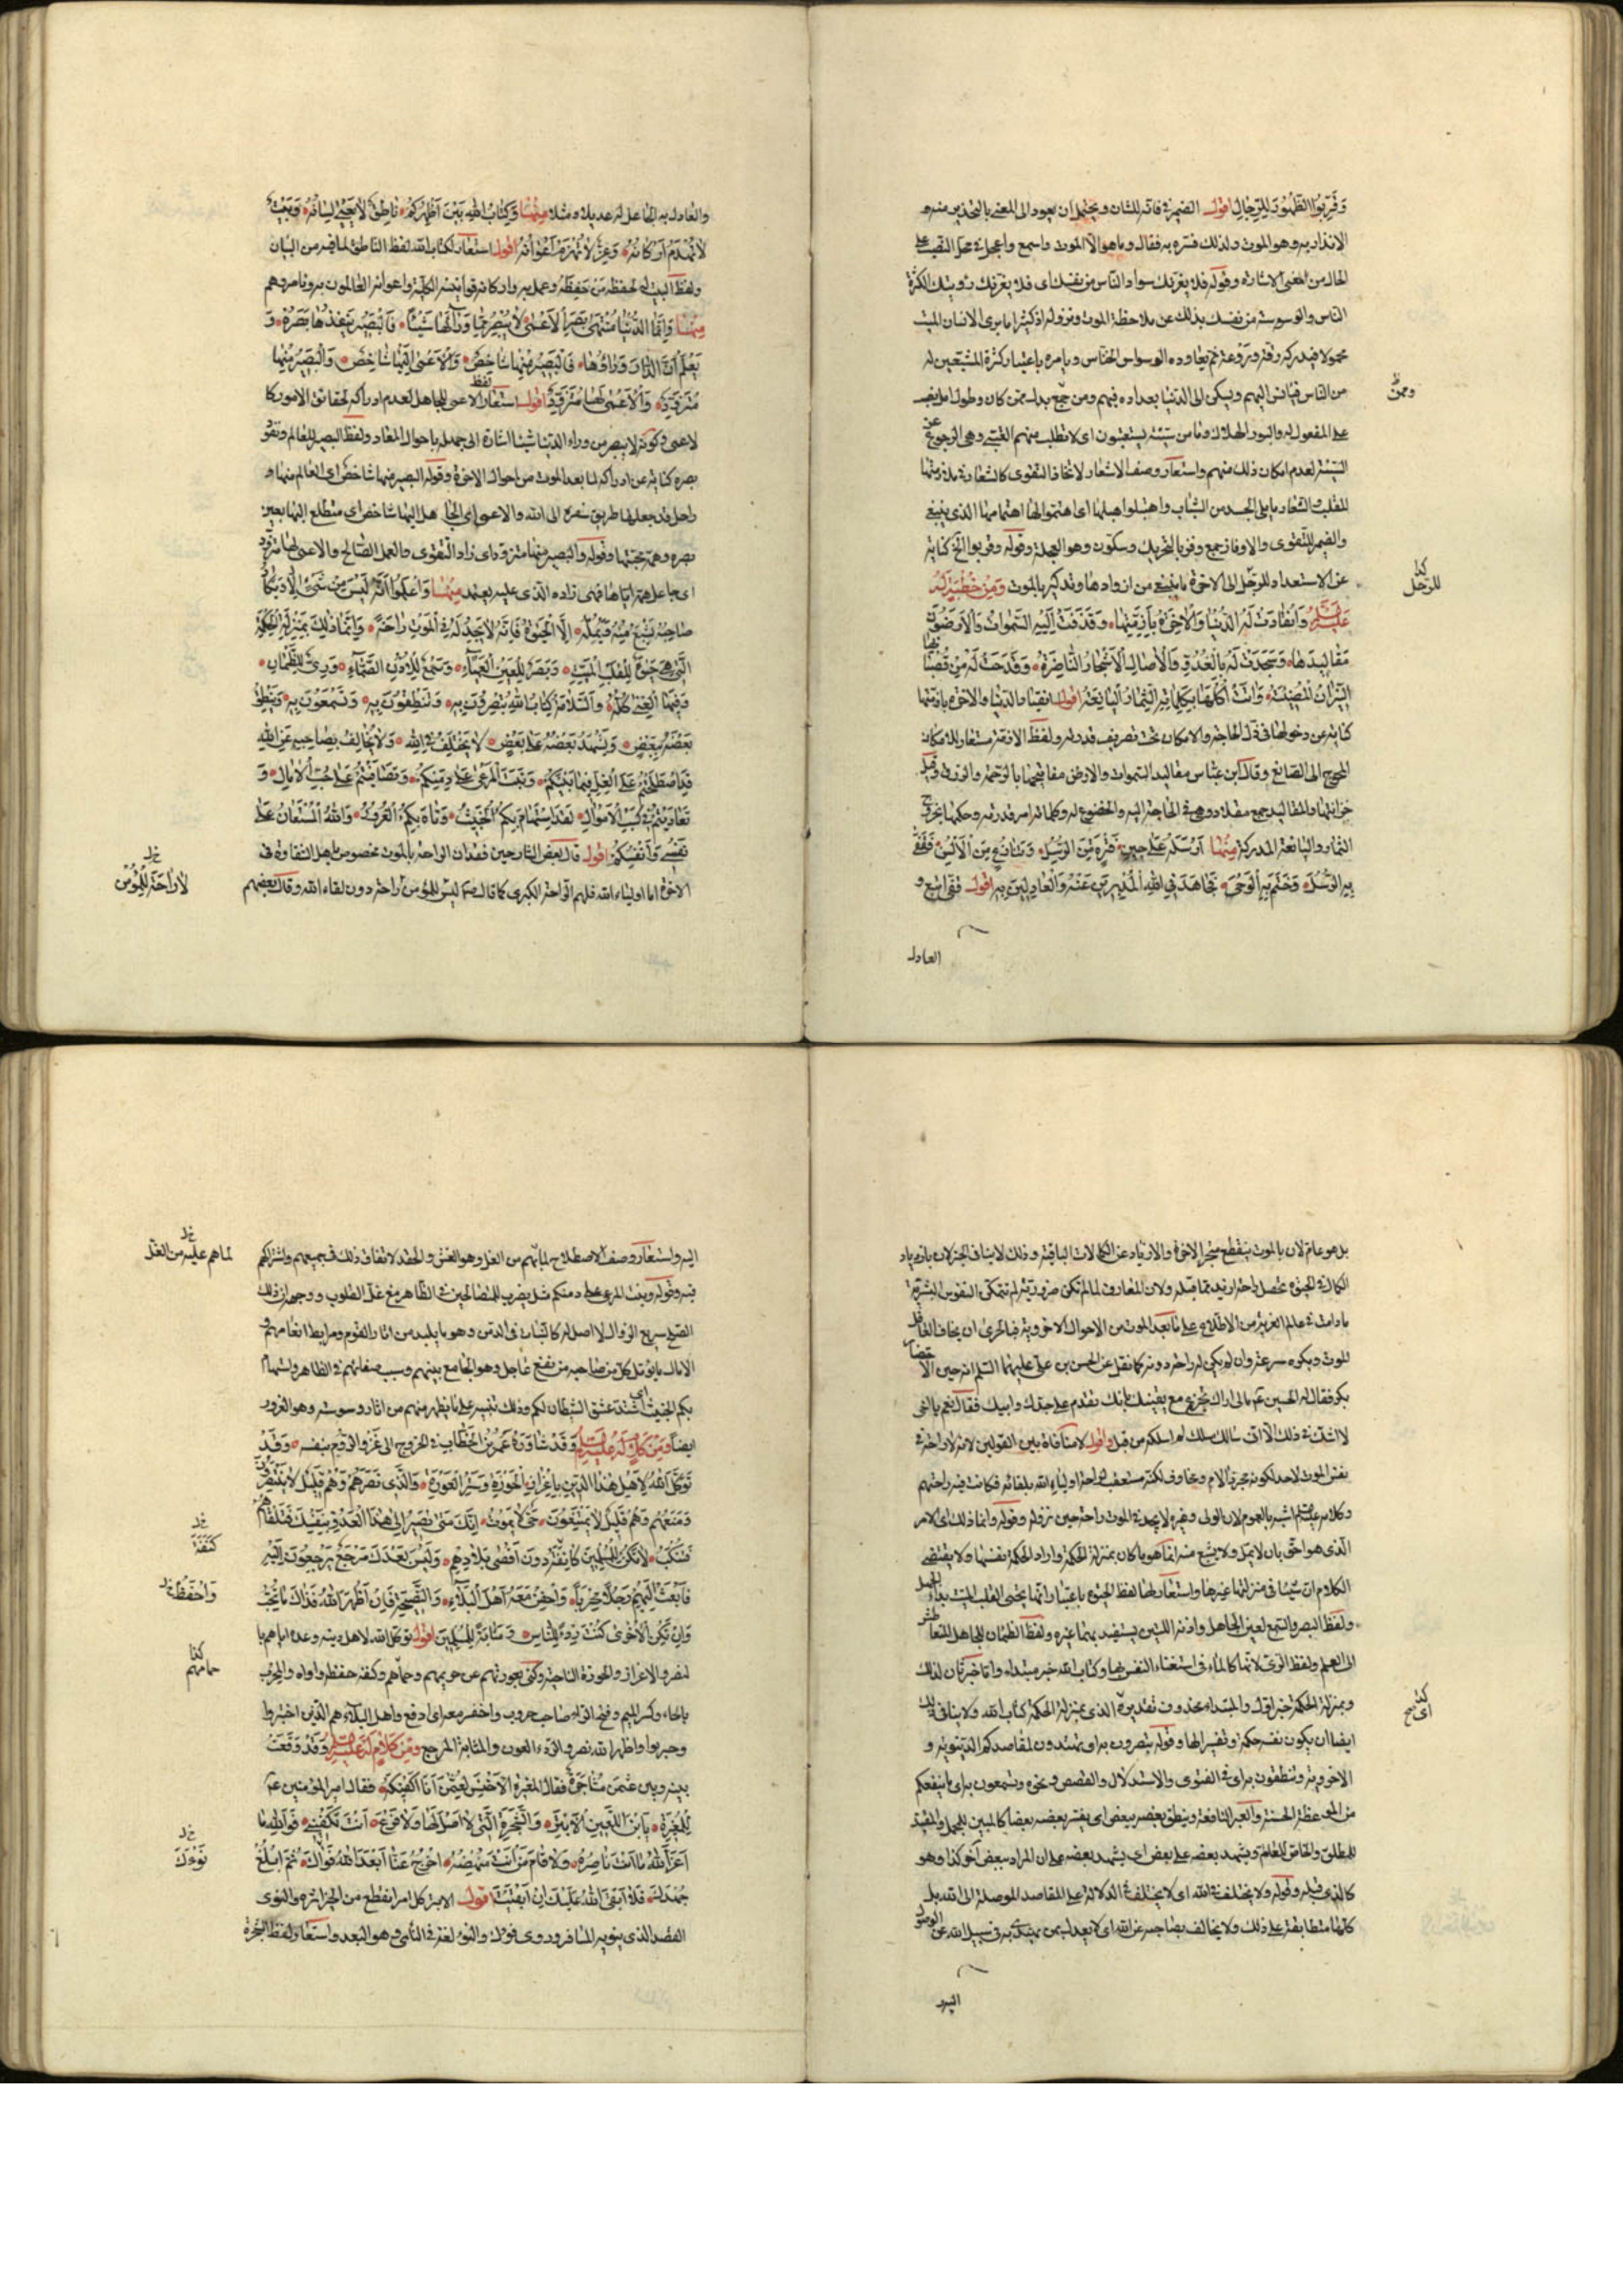 وَقَرِّبُوا الظُّهُورَ لِلزِّيَالِ اقول الضمير في فانه للشان ويحتمل ان يعود الى المعنى بالتحذير منه و
الانذار به وهو الموت ولذلك فسره به فقال وما هو الا الموت واسمع واعجل في محل النصب على
الحال من المعنى الاشارة وقوله فلا يغرنك سواد الناس من نفسك اى فلا يغرنك رؤيتك لكثرة
الناس والوسوسة من نفسك بذلك عن ملاحظة الموت ونزوله اذ كثيرا ما يرى الانسان الميت
محمولا فيدركه رقة وروعة ثم يعاوده الوسواس الخناس ويامره باعتبار كثرة المشيعين له
من الناس فيانس اليهم ويسكن الى الدنيا بعداده فيهم ومن جمع بدل ممن كان وطول امل نصب
وممن
على المفعول له والبور الهلاك ولا من سيئة يستعتبون اى لا تطلب منهم العتبى وهى الرجوع عن
السيئة لعدم امكان ذلك منهم واستعار وصف الاشعار لاتخاذ التقوى كالشعار في ملازمتها
للقلب والشعار ما يلى الجسد من الثياب واهتبلوا هبلها اى اهتموا لها اهتمامها الذى ينبغى
والضمير للتقوى والاوفاز جمع وفز بالتحريك وسكون وهو العجلة وقوله وقربوا الخ كناية
عن الاستعداد للرحل الى الاخرة بما ينبغى من ازوادها وتذكير بالموت وَمِنْ خُطْبَةٍ لَهُ
كذا
للرحل
عَلَيْهِ السَّلام وَانْقَادَتْ لَهُ الدُّنْيَا وَالْآخِرَةُ بِأَزِمَّتِهَا، وَقَذَفَتْ إِلَيْهِ السَّمَوَاتُ وَالْأَرَضُونَ
مَقَالِيدَهَا، وَسَجَدَتْ لَهُ بِالْغُدُوِّ وَالْآصَالِ الْأَشْجَارُ النَّاضِرَةُ، وَقَدَحَتْ لَهُ مِنْ قُضْبَانِهَا
النِّيرَانَ الْمُضِيئَةَ، وَآتَتْ أُكُلَهَا بِكَلِمَاتِهِ الثِّمَارُ الْيَانِعَةُ اقول انقياد الدنيا والاخرة بازمتها
كناية عن دخولها في ذل الحاجة والامكان تحت تصريف قدرته ولفظ الازمة مستعار للامكان
المحوج الى الصانع وقال ابن عباس مقاليد السموات والارض مفاتيحها بالرحمة والرزق وقيل
خزاينها والمقاليد جمع مقلاد وهى في الحاجة اليه والخضوع له وكلماته امر قدرته وحكمها بخروج
الثمار واليانعة المدركة مِنْهَا أَرْسَلَهُ عَلَى حِينِ فَتْرَةٍ مِنَ الرُّسُلِ، وَتَنَازُعٍ مِنَ الْأَلْسُنِ فَقَفَّى
بِهِ الرُّسُلَ، وَخَتَمَ بِهِ الْوَحْيَ، فَجَاهَدَ فِي اللهِ الْمُدْبِرِينَ عَنْهُ وَالْعَادِلِينَ بِهِ اقول قفى اتبع و
العادل
والعادل به الجاعل له عديلا ومثلا مِنْهَا وَكِتَابُ اللهِ بَيْنَ أَظْهُرِكُمْ، نَاطِقٌ لَا يَعْيَى لِسَانُهُ، وَبَيْتٌ
لَا تُهْدَمُ أَرْكَانُهُ، وَعِزٌّ لَا تُهْزَمُ أَعْوَانُهُ اقول استعار لكتاب الله لفظ الناطق لما فيه من البيان
ولفظ البيت لحفظه من حفظه وعمل به واركانه قوانينه الكلية واعوانه العالمون به وناصروهم
مِنْهَا وَإِنَّمَا الدُّنْيَا مُنْتَهَى بَصَرِ الْأَعْمَى، لَا يُبْصِرُ مِمَّا وَرَائَهَا شَيْئًا، فَالْبَصِيرُ يَنْفُذُهَا بَصَرُهُ، وَ
يَعْلَمُ أَنَّ الدَّارَ وَرَاؤُهَا، فَالْبَصِيرُ مِنْهَا شَاخِصٌ، وَالْأَعْمَى إِلَيْهَا شَاخِصٌ، وَالْبَصِيرُ مِنْهَا
مُتَزَوِّدٌ، وَالْأَعْمَى لَهَا مُتَزَوِّدٌ اقول استعار لفظ الاعمى للجاهل لعدم ادراكه لحقائق الامور كا
لاعمى وكونه لا يبصر من وراء الدنيا شيئا اشارة الى جهله باحوال المعاد ولفظ البصير للعالم ونفوذ
بصره كناية عن ادراكه لما بعد الموت من احوال الاخرة وقوله البصير منها شاخص اى العالم منها و
راحل قد جعلها طريق سفره الى الله والاعمى اى الجاهل اليها شاخص اى متطلع اليها بعين
بصره وهمه محبتها وقوله والبصير منها متزود اى زاد التقوى والعمل الصالح والاعمى لها متزود
اى جاعل همه اياها فهى زاده الذى عليه يعتمد مِنْهَا وَاعْلَمُوا أَنَّهُ لَيْسَ مِنْ شَيْءٍ إِلَّا وَيَكَادُ
صَاحِبُهُ يَشْبَعُ مِنْهُ وَيَمَلُّهُ، إِلَّا الْحَيَاةَ فَإِنَّهُ لَا يَجِدُ لَهُ فِي الْمَوْتِ رَاحَةً، وَإِنَّمَا ذَلِكَ بِمَنْزِلَةِ الْحِكْمَةِ
الَّتِي هِيَ حَيَاةٌ لِلْقَلْبِ الْمَيِّتِ، وَبَصَرٌ لِلْعَيْنِ الْعَمْيَاءِ، وَسَمْعٌ لِلْأُذُنِ الصَّمَّاءِ، وَرِيٌّ لِلظَّمْآنِ،
وَفِيهَا الْغِنَى كُلُّهُ، وَالسَّلَامَةُ كِتَابُ اللهِ تُبْصِرُونَ بِهِ، وَتَنْطِقُونَ بِهِ، وَتَسْمَعُونَ بِهِ، وَيَنْطِقُ
بَعْضُهُ بِبَعْضٍ، وَيَشْهَدُ بَعْضُهُ عَلَى بَعْضٍ، لَا يَخْتَلِفُ فِي اللهِ، وَلَا يُخَالِفُ بِصَاحِبِهِ عَنِ اللهِ
قَدِ اصْطَلَحْتُمْ عَلَى الْغِلِّ فِيمَا بَيْنَكُمْ، وَنَبَتَ الْمَرْعَى عَلَى دِمَنِكُمْ، وَتَصَافَيْتُمْ عَلَى حُبِّ الْآمَالِ، وَ
تَعَادَيْتُمْ فِي كَسْبِ الْأَمْوَالِ، لَقَدِ اسْتَهَامَ بِكُمُ الْخَبِيثُ، وَتَاهَ بِكُمُ الْغُرُورُ، وَاللهُ الْمُسْتَعَانُ عَلَى
نَفْسِي وَأَنْفُسِكُمْ اقول قال بعض الشارحين فقدان الراحة بالموت مخصوص باهل الشقاوة في
الاخرة اما اولياء الله فلهم الراحة الكبرى كما قال ص ليس للمؤمن راحة دون لقاء الله وقال بعضهم
خ ل
لا راحة للمؤمن
بل هو عام لان بالموت ينقطع متجر الاخرة والازدياد عن الكمالات الباقية وذلك لا ينافى الخبر لان بازدياد
الكمال في الحيوة تحصل راحة ازيد مما قبله ولان المعارف لما لم تكن ضرورية لم تتمكن النفوس البشرية
ما دامت في عالم الغربة من الاطلاع على ما بعد الموت من الاحوال الاخروية فبالحرى ان يخاف العاقل
للموت ويكره سرعته وان لم يكن له راحة دونه كما نقل عن الحسن بن على عليهما السلم انه حين الاحتضار
بكى فقال له الحسين ع مالى اراك تجزع مع يقينك بانك تقدم على جدك وابيك فقال نعم يا اخى
لا اشك في ذلك الا انى سالك مسلك لم اسلكه من قبل واقول لا منافاة بين القولين لانه لا راحة في
نفس الموت لاحد لكونه مجرد الام ومخاوف لكنه مستعقب لراحة اولياء الله بلقائه فكانت فيه راحتهم
وكلامه عليه السلم اشبه بالعموم لان الولى وغيره لا يجد في الموت راحة حين نزوله وقوله وانما ذلك اى الامر
الذى هو احق بان لا يمل ولا يشبع منه انما هو ما كان بمنزلة الحكمة واراد الحكمة نفسها ولا يقتضى
الكلام ان شيئا في منزلتها غيرها واستعار لها لفظ الحيوة باعتبار انها يحيى القلب الميت بداء الجهل
ولفظ البصر والسمع لعين الجاهل واذنه اللتين يستفيد بهما غيره ولفظ الظمان للجاهل المتعطش
الى العلم ولفظ الرى لانها كالماء في استغناء النفس بها وكتاب الله خبر مبتداء واما خبر ثان لذلك
وبمنزلة الحكمة خبر اول والمبتداء محذوف تقديره الذى بمنزلة الحكمة كتاب الله ولا ينافى ذلك
كذا
اى يسح
ايضا ان يكون نفس حكمة وتفسيرا لها وقوله تبصرون به اى تهتدون لمقاصدكم الدنيوية و
الاخروية وتنطقون به اى في الفتوى والاستدلال والقصص ونحوه وتسمعون به اى ما ينفعكم
من الموعظة الحسنة والعبر النافعة وينطق بعضه ببعض اى يفسر بعضه بعضا كالمبين للمجمل والمقيد
للمطلق والخاص للعام ويشهد بعضه على بعض اى يشهد بعضه على ان المراد ببعض آخر كذا وهو
كالذى قبله وقوله ولا يختلف في الله اى لا يختلف في الدلالة على المقاصد الموصلة الى الله بل
كلها متطابقة على ذلك ولا يخالف بصاحبه عن الله اى لا يعدل بمن تمسك به في سبيل الله عن الوصول
اليه
اليه واستعار وصف الاصطلاح لما بهم من الغل وهو الغش والحقد لاتفاق ذلك في جميعهم واشتراكهم
خ ل
لما هم عليه من الغل
فيه وقوله ونبت المرعى على دمنكم مثل يضرب للمتصالحين في الظاهر مع غل القلوب ووجهه ان ذلك
الصلح سريع الزوال لا اصل له كالنبات في الدمن وهو ما يلبد من اثار القوم ومرابط انعامهم و
الامال ما يؤمل كل من صاحبه من نفع عاجل وهو الجامع بينهم وسبب صفائهم في الظاهر واستهام
بكم الخبيث اى اشتد عشق الشيطان لكم وذلك تنبيه على ما يظهر منهم من اثار وسوسته وهو الغرور
ايضا وَمِنْ كَلامٍ لَهُ عَلَيْهِ السَّلم وَقَدْ شَاوَرَهُ عُمَرُ بْنُ الْخَطَّابِ في الخروج الى غَزْوِ الرُّومِ بنفسه، وَقَدْ
تَوَكَّلَ اللهُ لِأَهْلِ هَذَا الدِّينِ بِإِعْزَازِ الْحَوْزَةِ وَسَتْرِ الْعَوْرَةِ، وَالَّذِي نَصَرَهُمْ وَهُمْ قَلِيلٌ لَا يَنْتَصِرُونَ
وَمَنَعَهُمْ وَهُمْ قَلِيلٌ لَا يَمْتَنِعُونَ، حَيٌّ لَا يَمُوتُ، إِنَّكَ مَتَى تَصِرْ إِلَى هَذَا الْعَدُوِّ بِنَفْسِكَ فَتَلْقَاهُمْ
فَتُنْكَبْ، لَا تَكُنْ لِلْمُسْلِمِينَ كَانِفَةٌ دُونَ أَقْصَى بِلَادِهِمْ، وَلَيْسَ بَعْدَكَ مَرْجَعٌ يَرْجِعُونَ إِلَيْهِ
خ ل
كَنَفَةٌ
فَابْعَثْ إِلَيْهِمْ رَجُلًا مِحْرَبًا، وَاحْفِزْ مَعَهُ أَهْلَ الْبَلَاءِ، وَالنَّصِيحَةِ فَإِنْ أَظْهَرَ اللهُ فَذَاكَ مَا تُحِبُّ
خ ل
وَإِنْ تَكُنِ الْأُخْرَى كُنْتَ رِدْءً لِلنَّاسِ، وَمَثَابَةً لِلْمُسْلِمِينَ اقول توكل الله لاهل دينه وعده اياهم با
لنصر والاعزاز والحوزة الناحية وكنى بعورتهم عن حريمهم وحماهم وكنفه حفظه واواه والمحرب
كذا
بالحاء وكسر الميم وفتح الراء صاحب حروب واحفز معه اى ادفع واهل البلاء هم الذين اختبروا
وجربوا واظهر الله نصر والردء العون والمثابة المرجع وَمِنْ كَلامٍ لَهُ عَلَيْهِ السَّلم وَقَدْ وَقَعَتْ
بينه وبين عثمن مُشَاجَرَةٌ فقال المغيرة بن الاخنس لعثمن أَنَا أَكْفِيكَهُ، فقال امير المؤمنين ع
لِلْمُغِيرَةِ، يَا ابْنَ اللَّعِينِ الْأَبْتَرِ، وَالشَّجَرَةِ الَّتِي لَا أَصْلَ لَهَا وَلَا فَرْعَ، أَنْتَ تَكْفِينِي، فَوَاللهِ مَا
أَعَزَّ اللهُ مَا أَنْتَ نَاصِرُهُ، وَلَا قَامَ مَنْ أَنْتَ مُنْهِضُهُ، اخْرُجْ عَنَّا أَبْعَدَ اللهُ نَوَاكَ، ثُمَّ ابْلُغْ
خ ل
نَوْءَكَ
جُهْدَكَ، فَلَا أَبْقَى اللهُ عَلَيْكَ إِنْ أَبْقَيْتَ اقول الابتر كل امر انقطع من الخير اثره والنوى
القصد الذى ينويه المسافر وروى نوءك والنوء لغة في النأى وهو البعد واستعار لفظ الشجرة